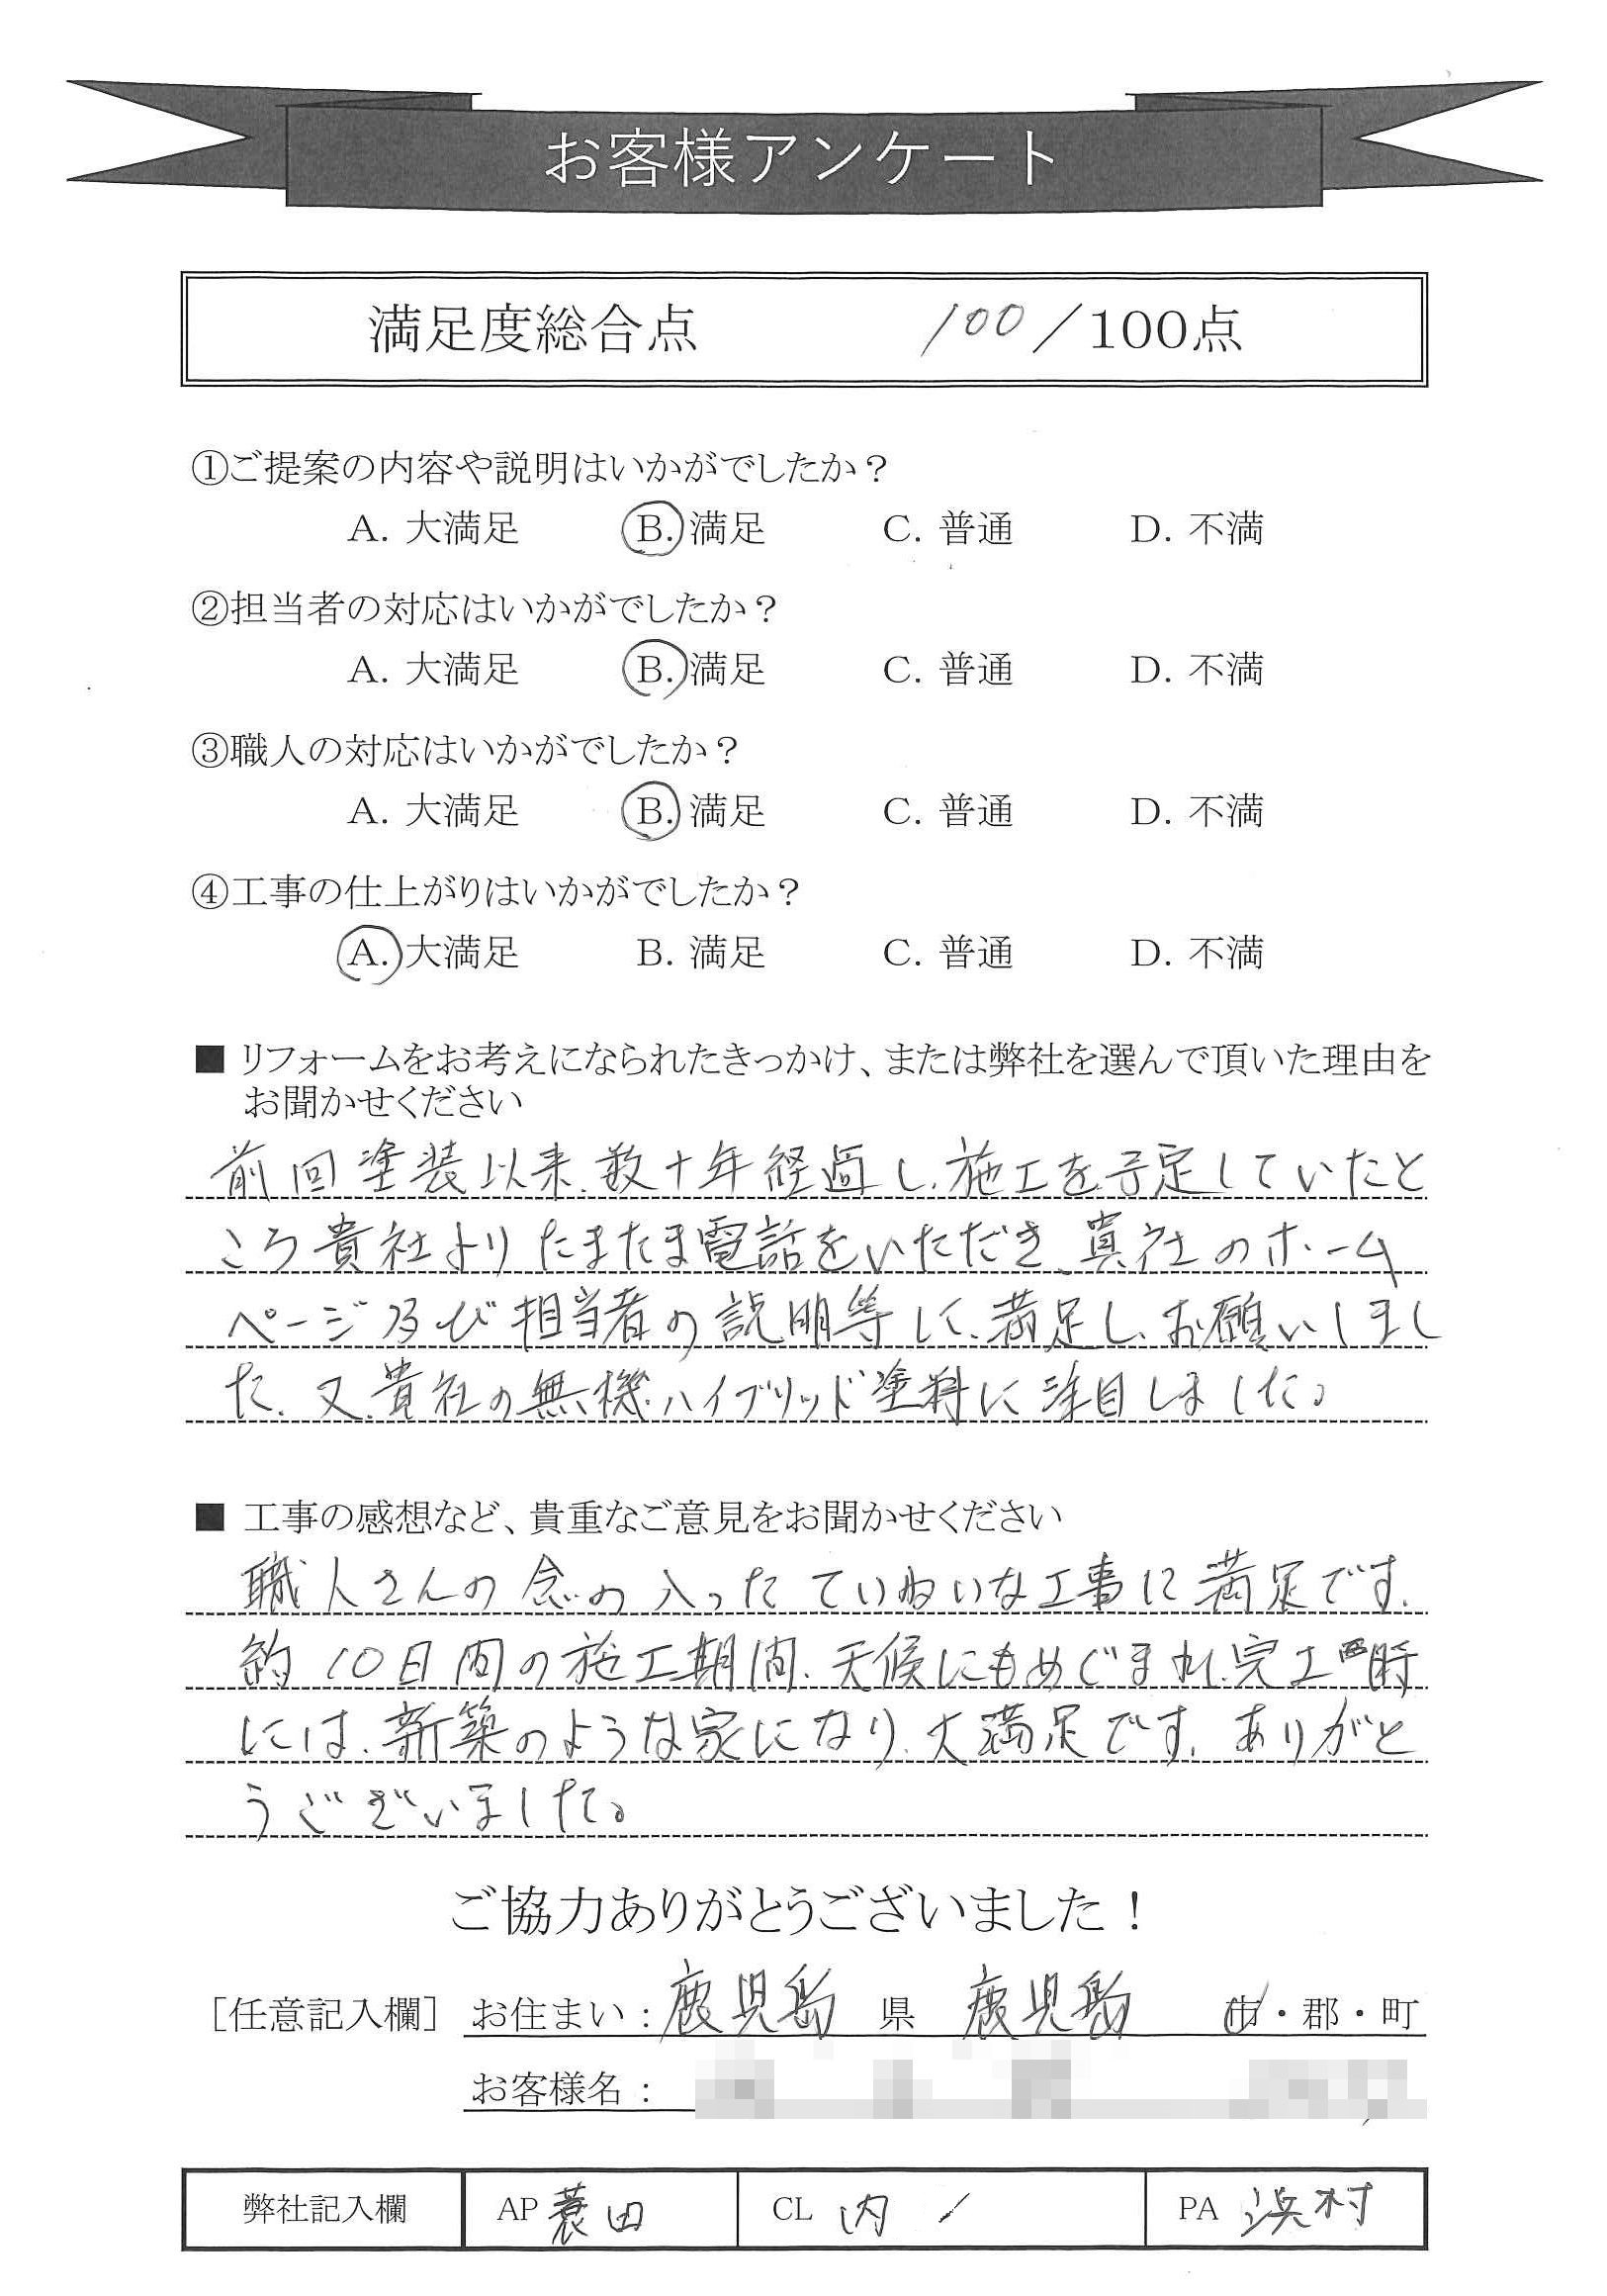 お客様アンケート
満足度総合点 100／100点
①ご提案の内容や説明はいかがでしたか？
A. 大満足 B. 満足 C. 普通 D. 不満
②担当者の対応はいかがでしたか？
A. 大満足 B. 満足 C. 普通 D. 不満
③職人の対応はいかがでしたか？
A. 大満足 B. 満足 C. 普通 D. 不満
④工事の仕上がりはいかがでしたか？
A. 大満足 B. 満足 C. 普通 D. 不満
■ リフォームをお考えになられたきっかけ、または弊社を選んで頂いた理由を
お聞かせください
前回塗装以来、数十年経過し、施工を予定していたと
ころ貴社よりたまたま電話をいただき、貴社のホーム
ページ及び担当者の説明等しに、満足し、お願いしまし
た、又、貴社の無機ハイブリッド塗料に注目しました。
■ 工事の感想など、貴重なご意見をお聞かせください
職人さんの念の入ったていねいな工事に満足です、
約10日間の施工期間、天候にもめぐまれ、完工時
には、新築のような家になり、大満足です、ありがと
うございました。
ご協力ありがとうございました！
［任意記入欄］ お住まい：鹿児島 県 鹿児島 市・郡・町
お客様名：
弊社記入欄 AP 蓑田 CL 内 ／ PA 浜村